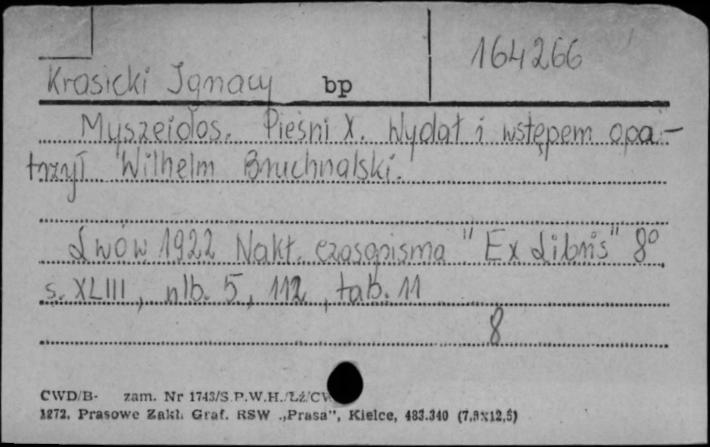 164266
Krasicki Ignacy bp
Myszeidos. Pieśni X. Wydał i wstępem opa-
trzył Wilhelm Bruchnalski.
Lwów 1922 Nakł. czasopisma "Ex Libris" 8°
s. XLIII, nlb. 5, 112, tab. 11
8
CWD/B- zam. Nr 1743/S.P.W.H./Łź/CW
1272. Prasowe Zakł. Graf. RSW „Prasa", Kielce, 483.340 (7,5x12,5)